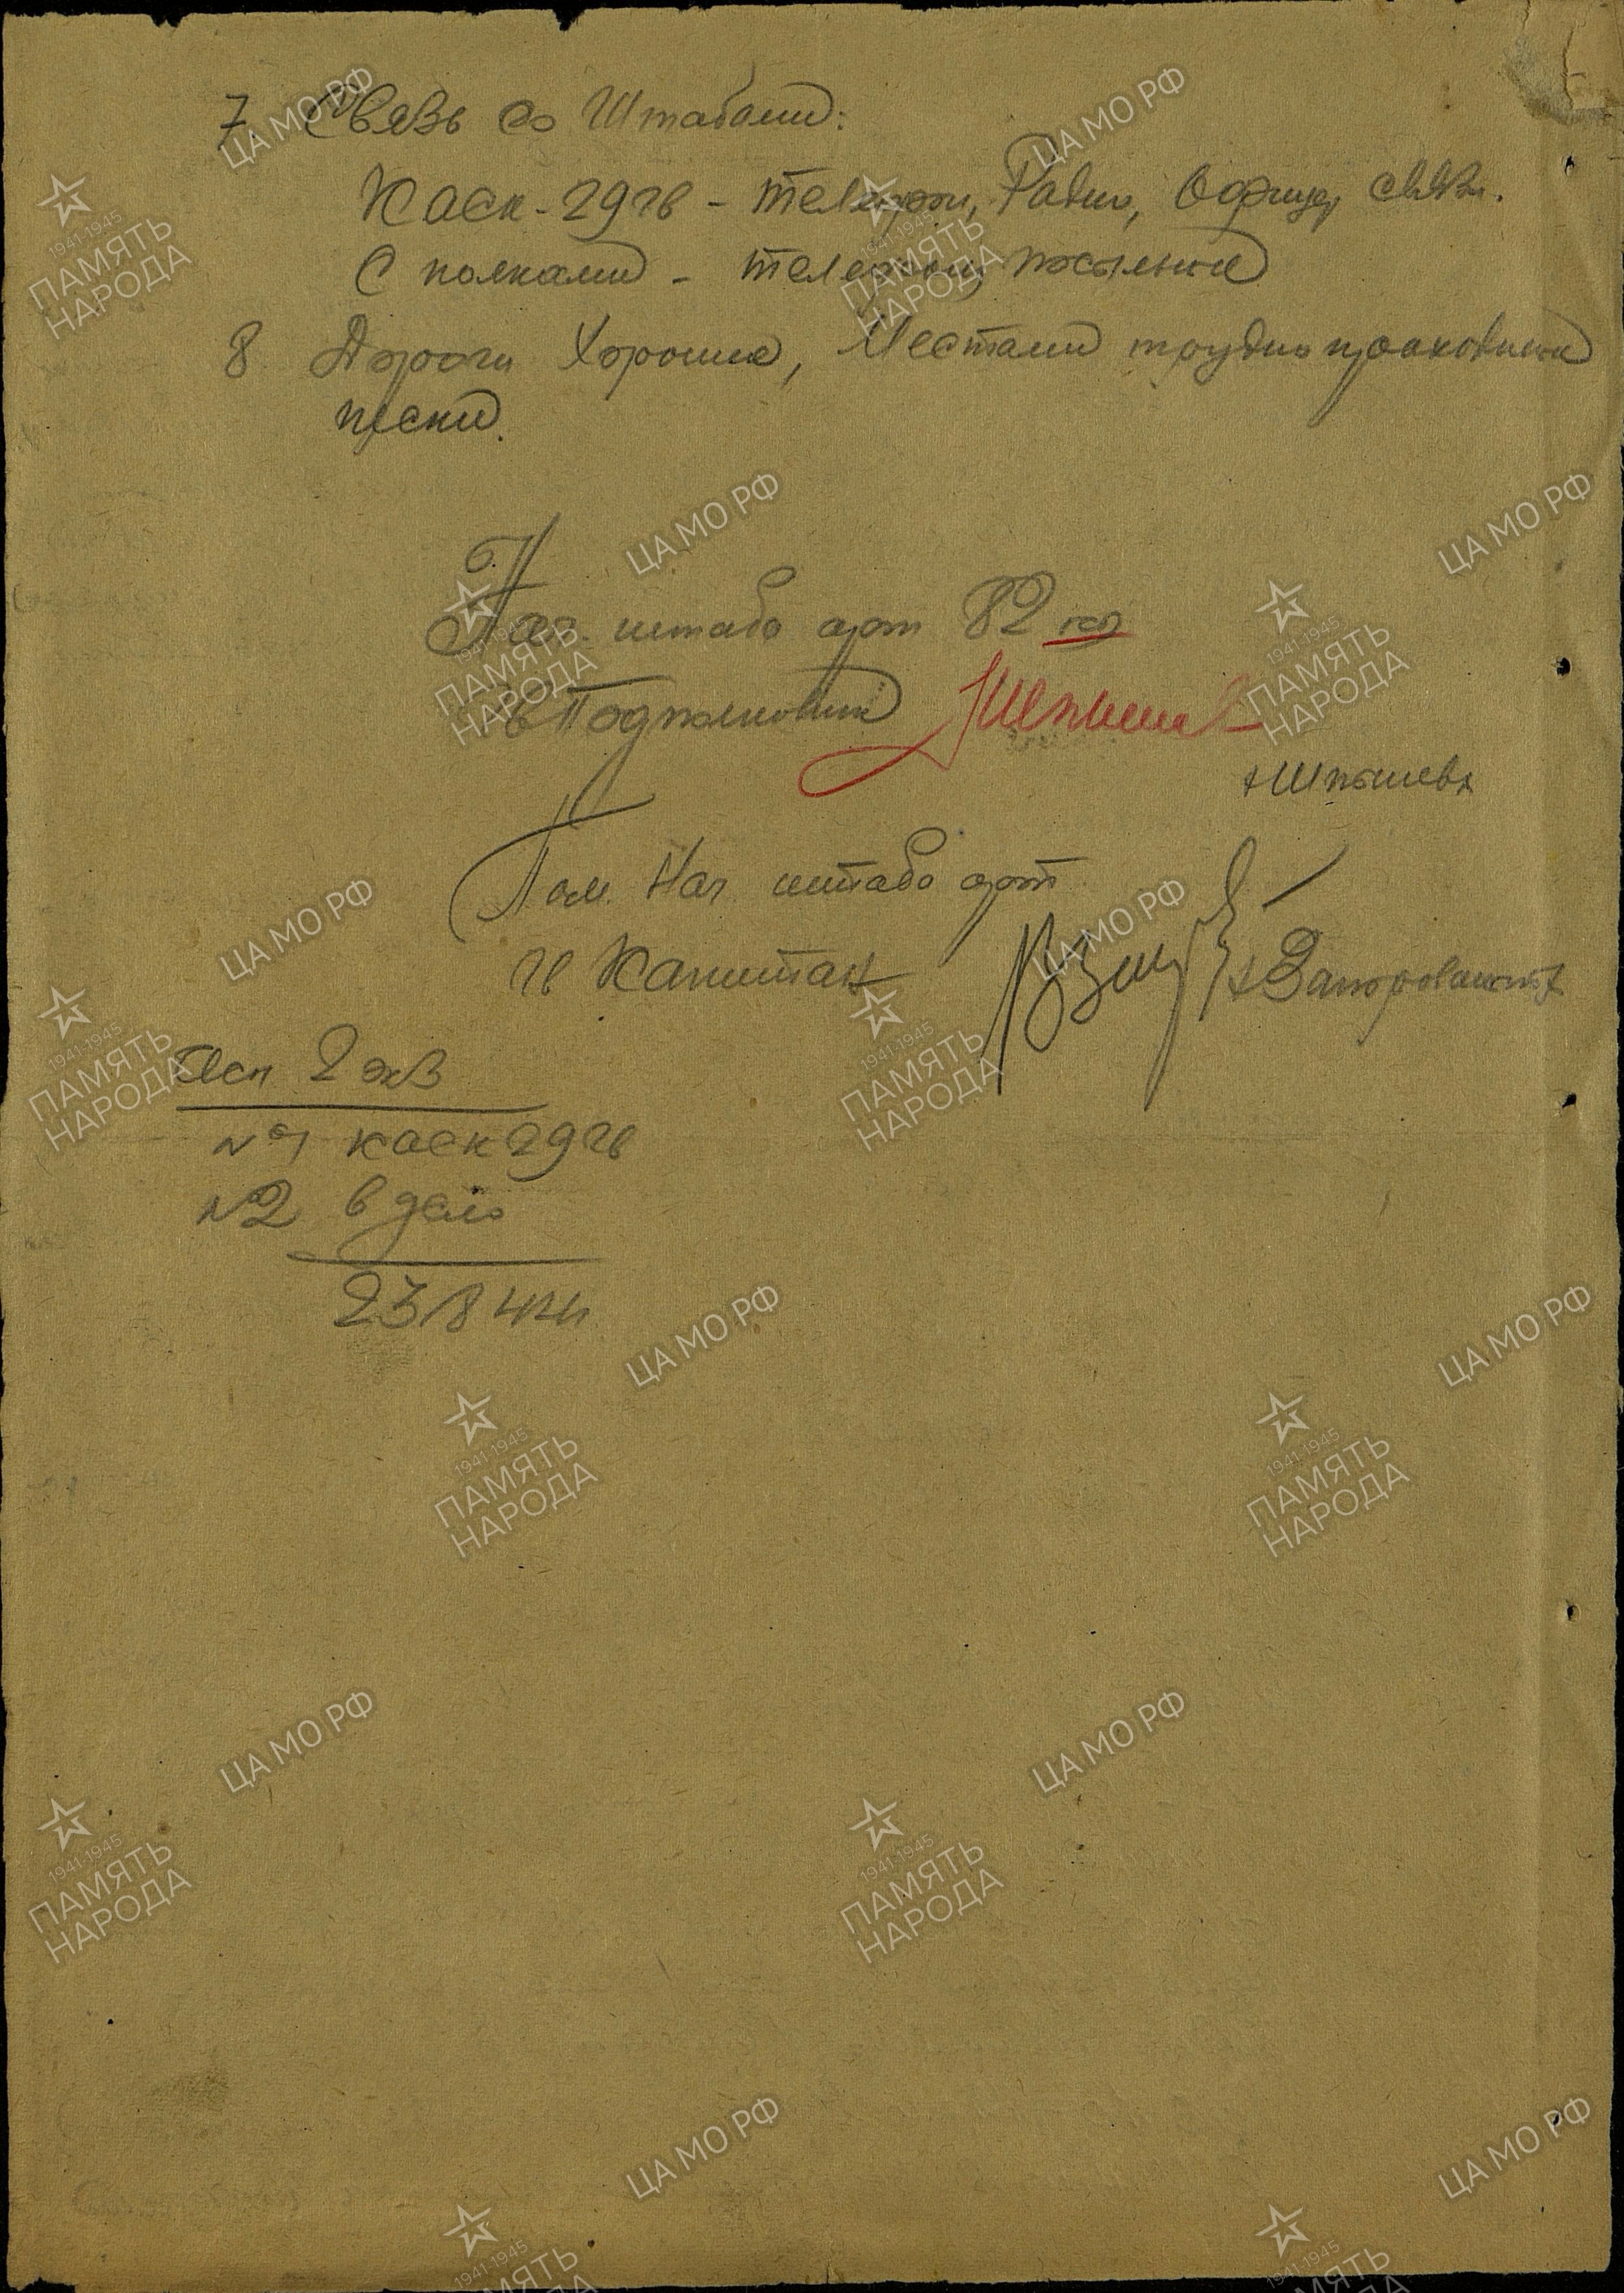 7. Связь со Штабами:
КаСк-29 гв - телефон, Радио, Офицер связи.
С полками - телефон, посыльные
8 Дороги Хорошие, Местами трудно проходимые
пески.
Нач. штаба арт 82 гсд
гв Подполковник
/Шпышев/
Пом. Нач. штаба арт
гв Капитан
Исп 2 экз
№1 КаСк 29 гв
№2 в дело
23.8.44 г.
ЦА МО РФ
1941-1945
ПАМЯТЬ
НАРОДА